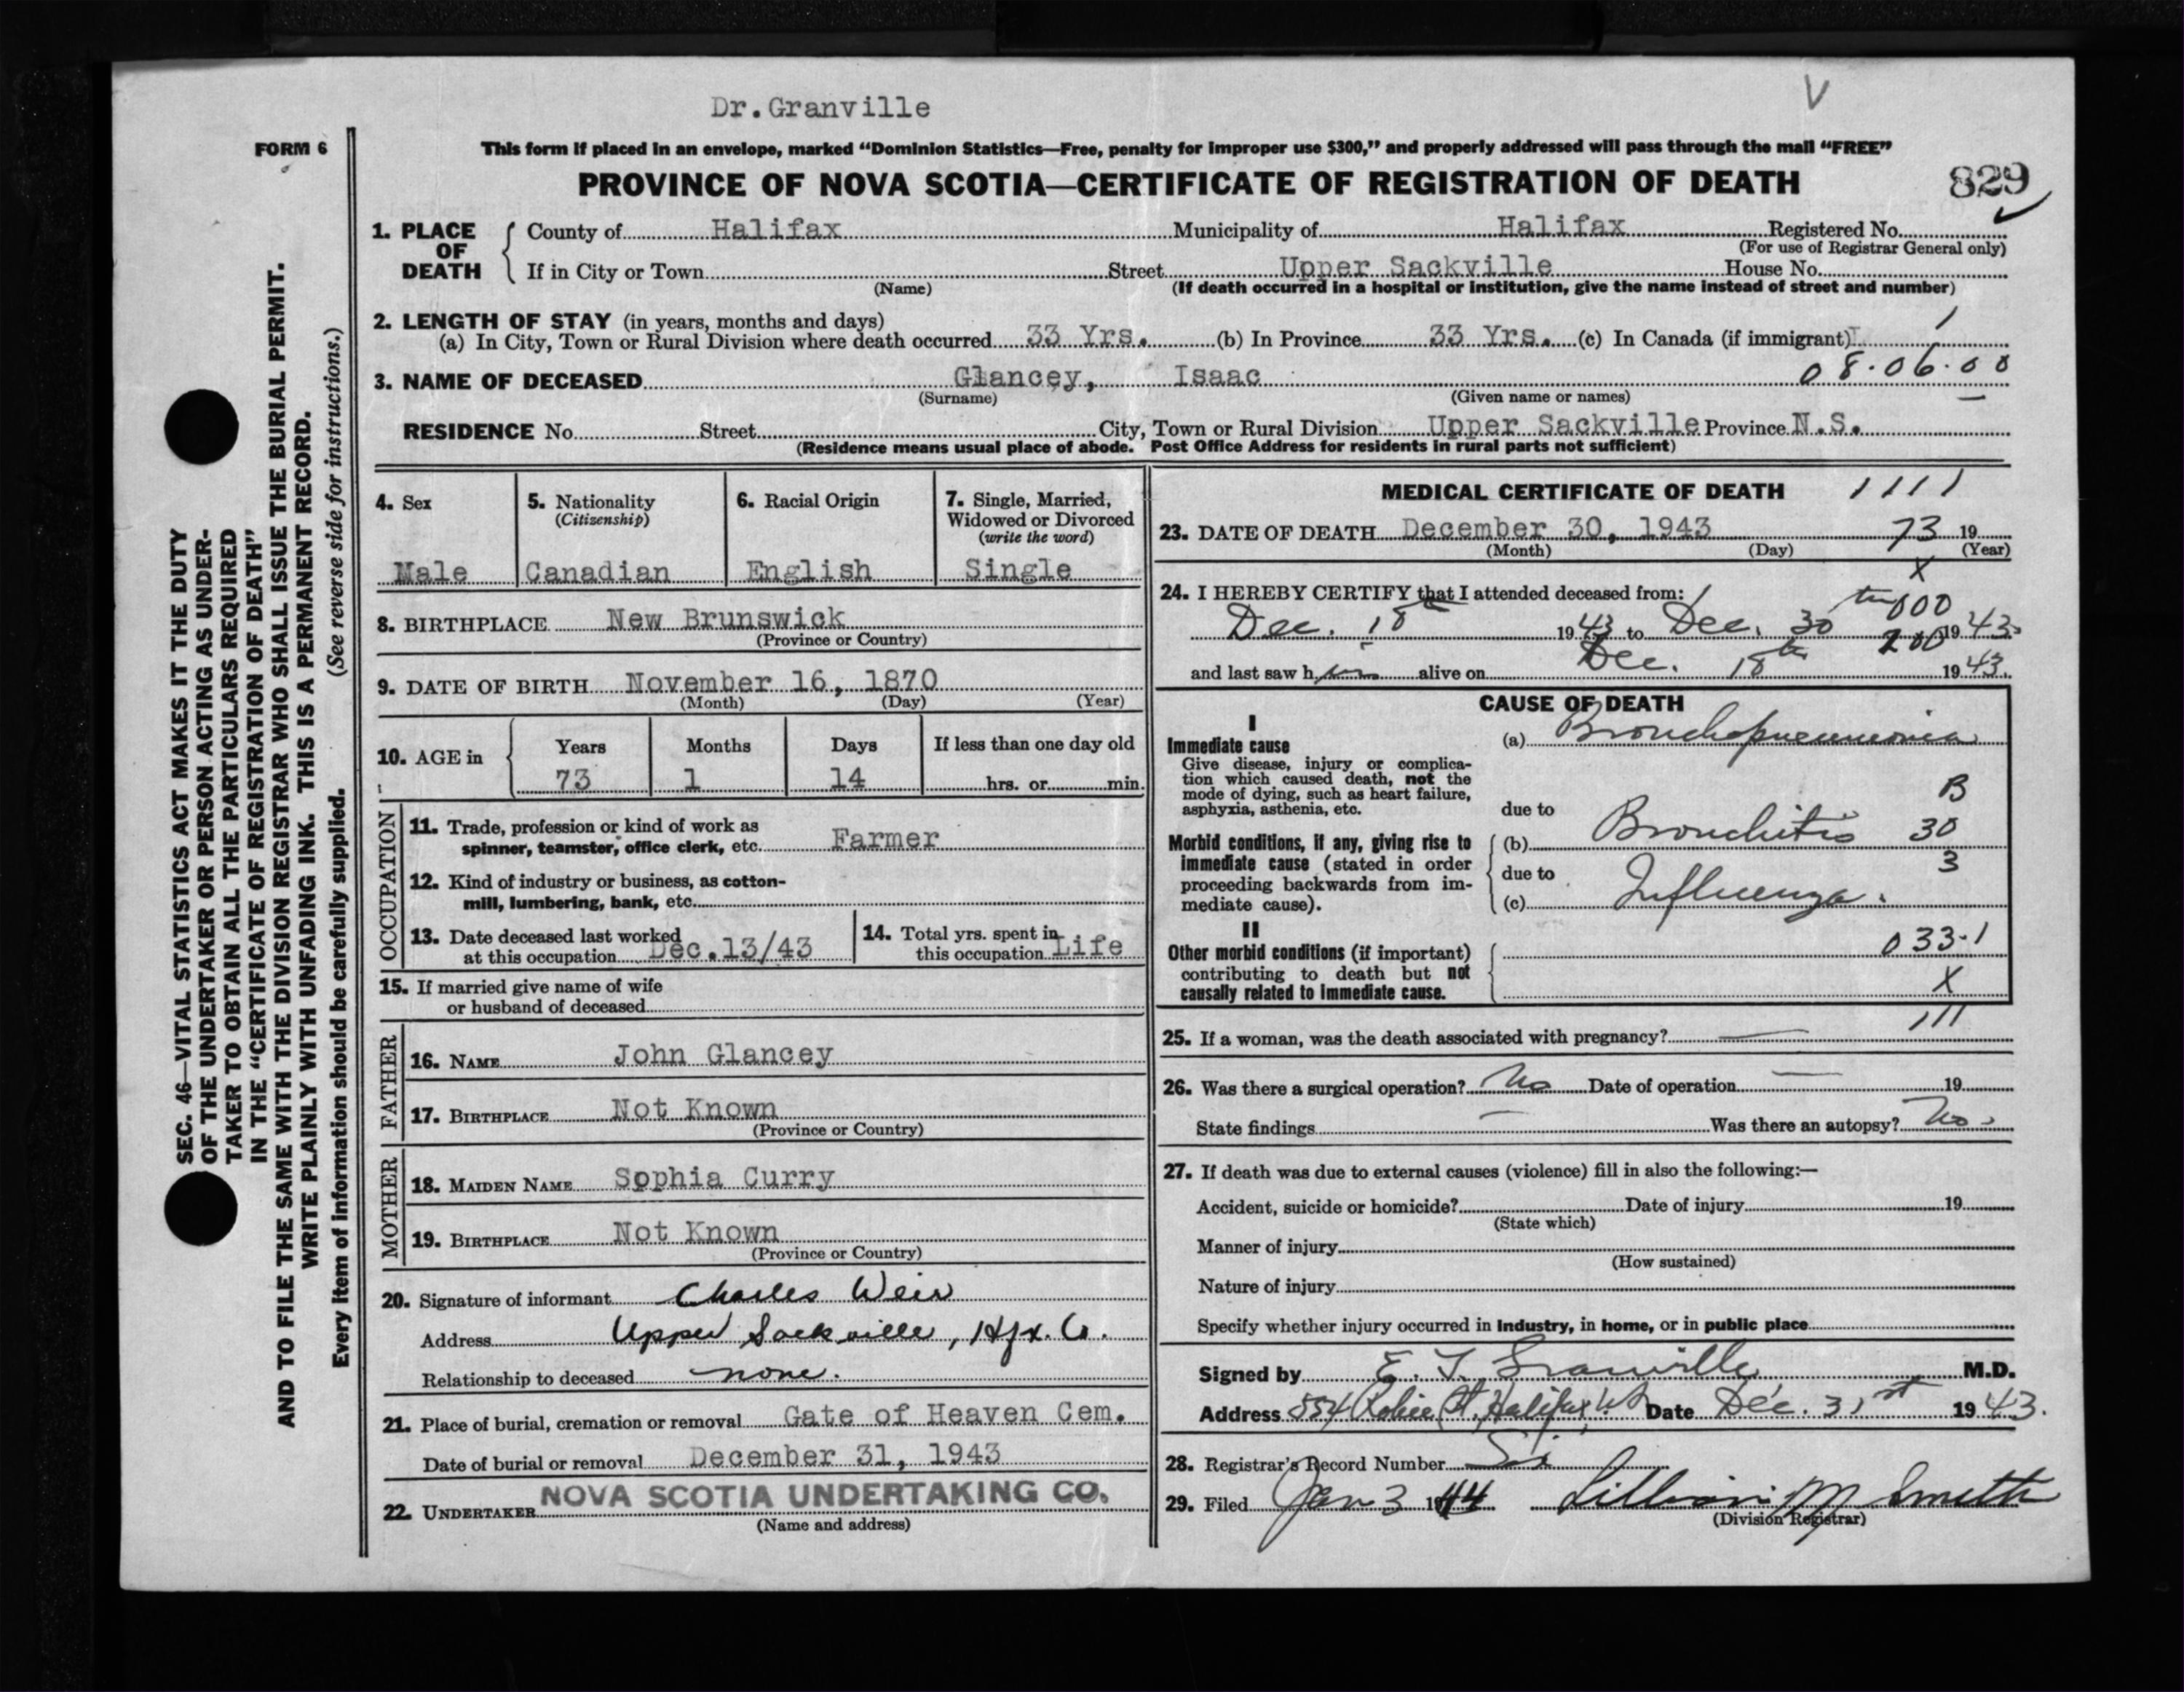 Dr.Granville
V
FORM 6
This form if placed in an envelope, marked “Dominion Statistics—Free, penalty for improper use $300,” and properly addressed will pass through the mail “FREE”
PROVINCE OF NOVA SCOTIA—CERTIFICATE OF REGISTRATION OF DEATH
829
1. PLACE OF DEATH
County of Halifax Municipality of Halifax Registered No.
(For use of Registrar General only)
If in City or Town Street Upper Sackville House No.
(Name) (If death occurred in a hospital or institution, give the name instead of street and number)
2. LENGTH OF STAY (in years, months and days)
(a) In City, Town or Rural Division where death occurred 33 Yrs. (b) In Province 33 Yrs. (c) In Canada (if immigrant) 1
3. NAME OF DECEASED Glancey, Isaac 08.06.00
(Surname) (Given name or names)
RESIDENCE No. Street City, Town or Rural Division Upper Sackville Province N.S.
(Residence means usual place of abode. Post Office Address for residents in rural parts not sufficient)
SEC. 46—VITAL STATISTICS ACT MAKES IT THE DUTY
OF THE UNDERTAKER OR PERSON ACTING AS UNDER-
TAKER TO OBTAIN ALL THE PARTICULARS REQUIRED
IN THE “CERTIFICATE OF REGISTRATION OF DEATH”
AND TO FILE THE SAME WITH THE DIVISION REGISTRAR WHO SHALL ISSUE THE BURIAL PERMIT.
WRITE PLAINLY WITH UNFADING INK. THIS IS A PERMANENT RECORD.
Every item of information should be carefully supplied. (See reverse side for instructions.)
4. Sex
Male
5. Nationality
(Citizenship)
Canadian
6. Racial Origin
English
7. Single, Married,
Widowed or Divorced
(write the word)
Single
8. BIRTHPLACE New Brunswick
(Province or Country)
9. DATE OF BIRTH November 16, 1870
(Month) (Day) (Year)
10. AGE in Years Months Days If less than one day old
73 1 14 hrs. or min.
OCCUPATION
11. Trade, profession or kind of work as
spinner, teamster, office clerk, etc. Farmer
12. Kind of industry or business, as cotton-
mill, lumbering, bank, etc.
13. Date deceased last worked
at this occupation Dec.13/43
14. Total yrs. spent in
this occupation Life
15. If married give name of wife
or husband of deceased
FATHER
16. NAME John Glancey
17. BIRTHPLACE Not Known
(Province or Country)
MOTHER
18. MAIDEN NAME Sophia Curry
19. BIRTHPLACE Not Known
(Province or Country)
20. Signature of informant Charles Weir
Address Upper Sackville, Hfx. Co.
Relationship to deceased none.
21. Place of burial, cremation or removal Gate of Heaven Cem.
Date of burial or removal December 31, 1943
22. UNDERTAKER NOVA SCOTIA UNDERTAKING CO.
(Name and address)
MEDICAL CERTIFICATE OF DEATH 1111
23. DATE OF DEATH December 30, 1943 73 19
(Month) (Day) (Year)
X
24. I HEREBY CERTIFY that I attended deceased from:
000
Dec. 18th 1943 to Dec. 30th 1943
200
and last saw him alive on Dec. 18th 1943
CAUSE OF DEATH
I
Immediate cause
Give disease, injury or complica-
tion which caused death, not the
mode of dying, such as heart failure,
asphyxia, asthenia, etc.
(a) Bronchopneumonia
B
due to
Morbid conditions, if any, giving rise to
immediate cause (stated in order
proceeding backwards from im-
mediate cause).
(b) Bronchitis 30
due to 3
(c) Influenza.
II
Other morbid conditions (if important)
contributing to death but not
causally related to immediate cause.
033.1
X
111
25. If a woman, was the death associated with pregnancy? —
26. Was there a surgical operation? No Date of operation — 19
State findings — Was there an autopsy? No
27. If death was due to external causes (violence) fill in also the following:—
Accident, suicide or homicide? Date of injury 19
(State which)
Manner of injury
(How sustained)
Nature of injury
Specify whether injury occurred in industry, in home, or in public place
Signed by E. T. Granville M.D.
Address 554 Robie St, Halifax, NS Date Dec. 31st 1943.
28. Registrar's Record Number Six
29. Filed Jan 3 1944 Lillian M Smith
(Division Registrar)